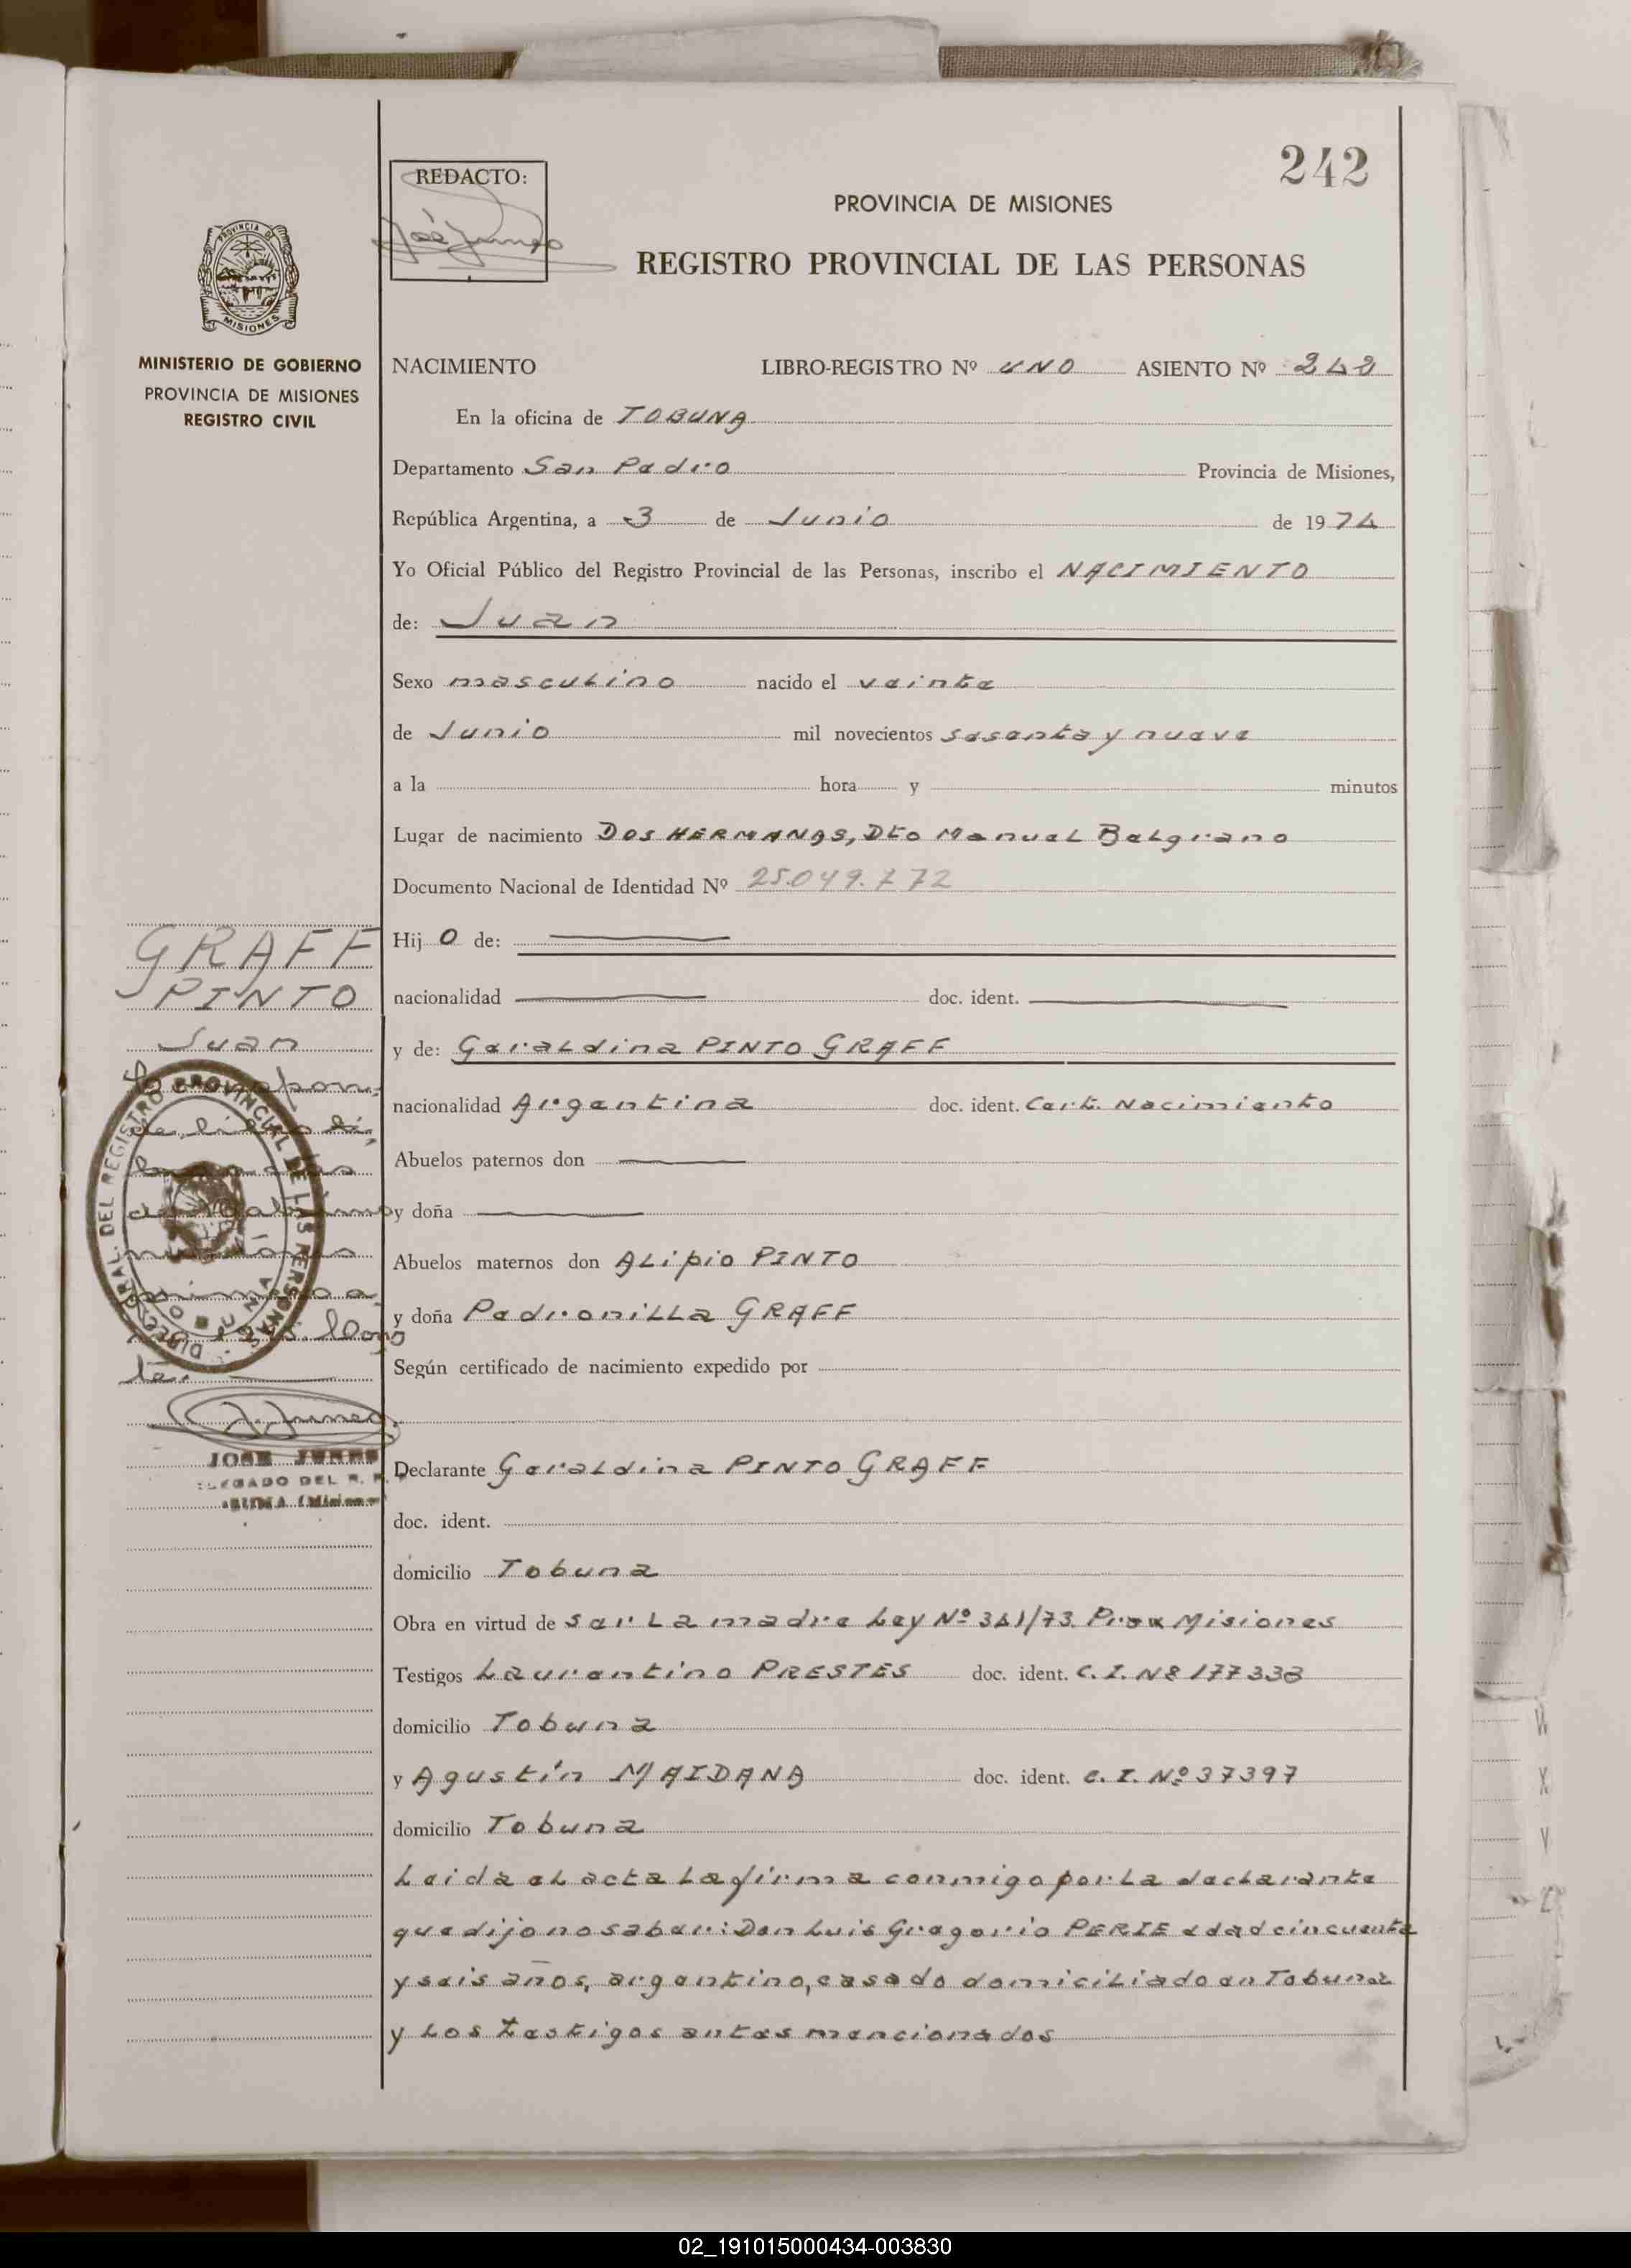 242
REDACTO:
PROVINCIA DE MISIONES
REGISTRO PROVINCIAL DE LAS PERSONAS
PROVINCIA DE
MISIONES
MINISTERIO DE GOBIERNO
PROVINCIA DE MISIONES
REGISTRO CIVIL
NACIMIENTO LIBRO-REGISTRO Nº UNO ASIENTO Nº 242
En la oficina de TOBUNA
Departamento San Pedro Provincia de Misiones,
República Argentina, a 3 de Junio de 1974
Yo Oficial Público del Registro Provincial de las Personas, inscribo el NACIMIENTO
de: Juan
Sexo masculino nacido el veinte
de Junio mil novecientos sesenta y nueve
a la hora y minutos
Lugar de nacimiento Dos HERMANAS, Dto Manuel Belgrano
Documento Nacional de Identidad Nº 25.049.772
Hijo de:
nacionalidad doc. ident.
y de: Geraldina PINTO GRAFF
nacionalidad Argentina doc. ident. Cert. Nacimiento
Abuelos paternos don
y doña
Abuelos maternos don ALipio PINTO
y doña Pedronilla GRAFF
Según certificado de nacimiento expedido por
Declarante Geraldina PINTO GRAFF
doc. ident.
domicilio Tobuna
Obra en virtud de ser La madre Ley Nº 341/73. Misiones
Testigos Laurentino PRESTES doc. ident. C. I. Nº 177338
domicilio Tobuna
y Agustín MAIDANA doc. ident. C. I. Nº 37397
domicilio Tobuna
Leida el acta La firma conmigo por La declarante
que dijo no saber: Don Luis Gregorio PERIE edad cincuenta
y seis años, argentino, casado domiciliado en Tobuna
y Los testigos antes mencionados
GRAFF
PINTO
Juan
DIREC. GRAL. DEL REGISTRO PROVINCIAL DE LAS PERSONAS
JOSE
02_191015000434-003830